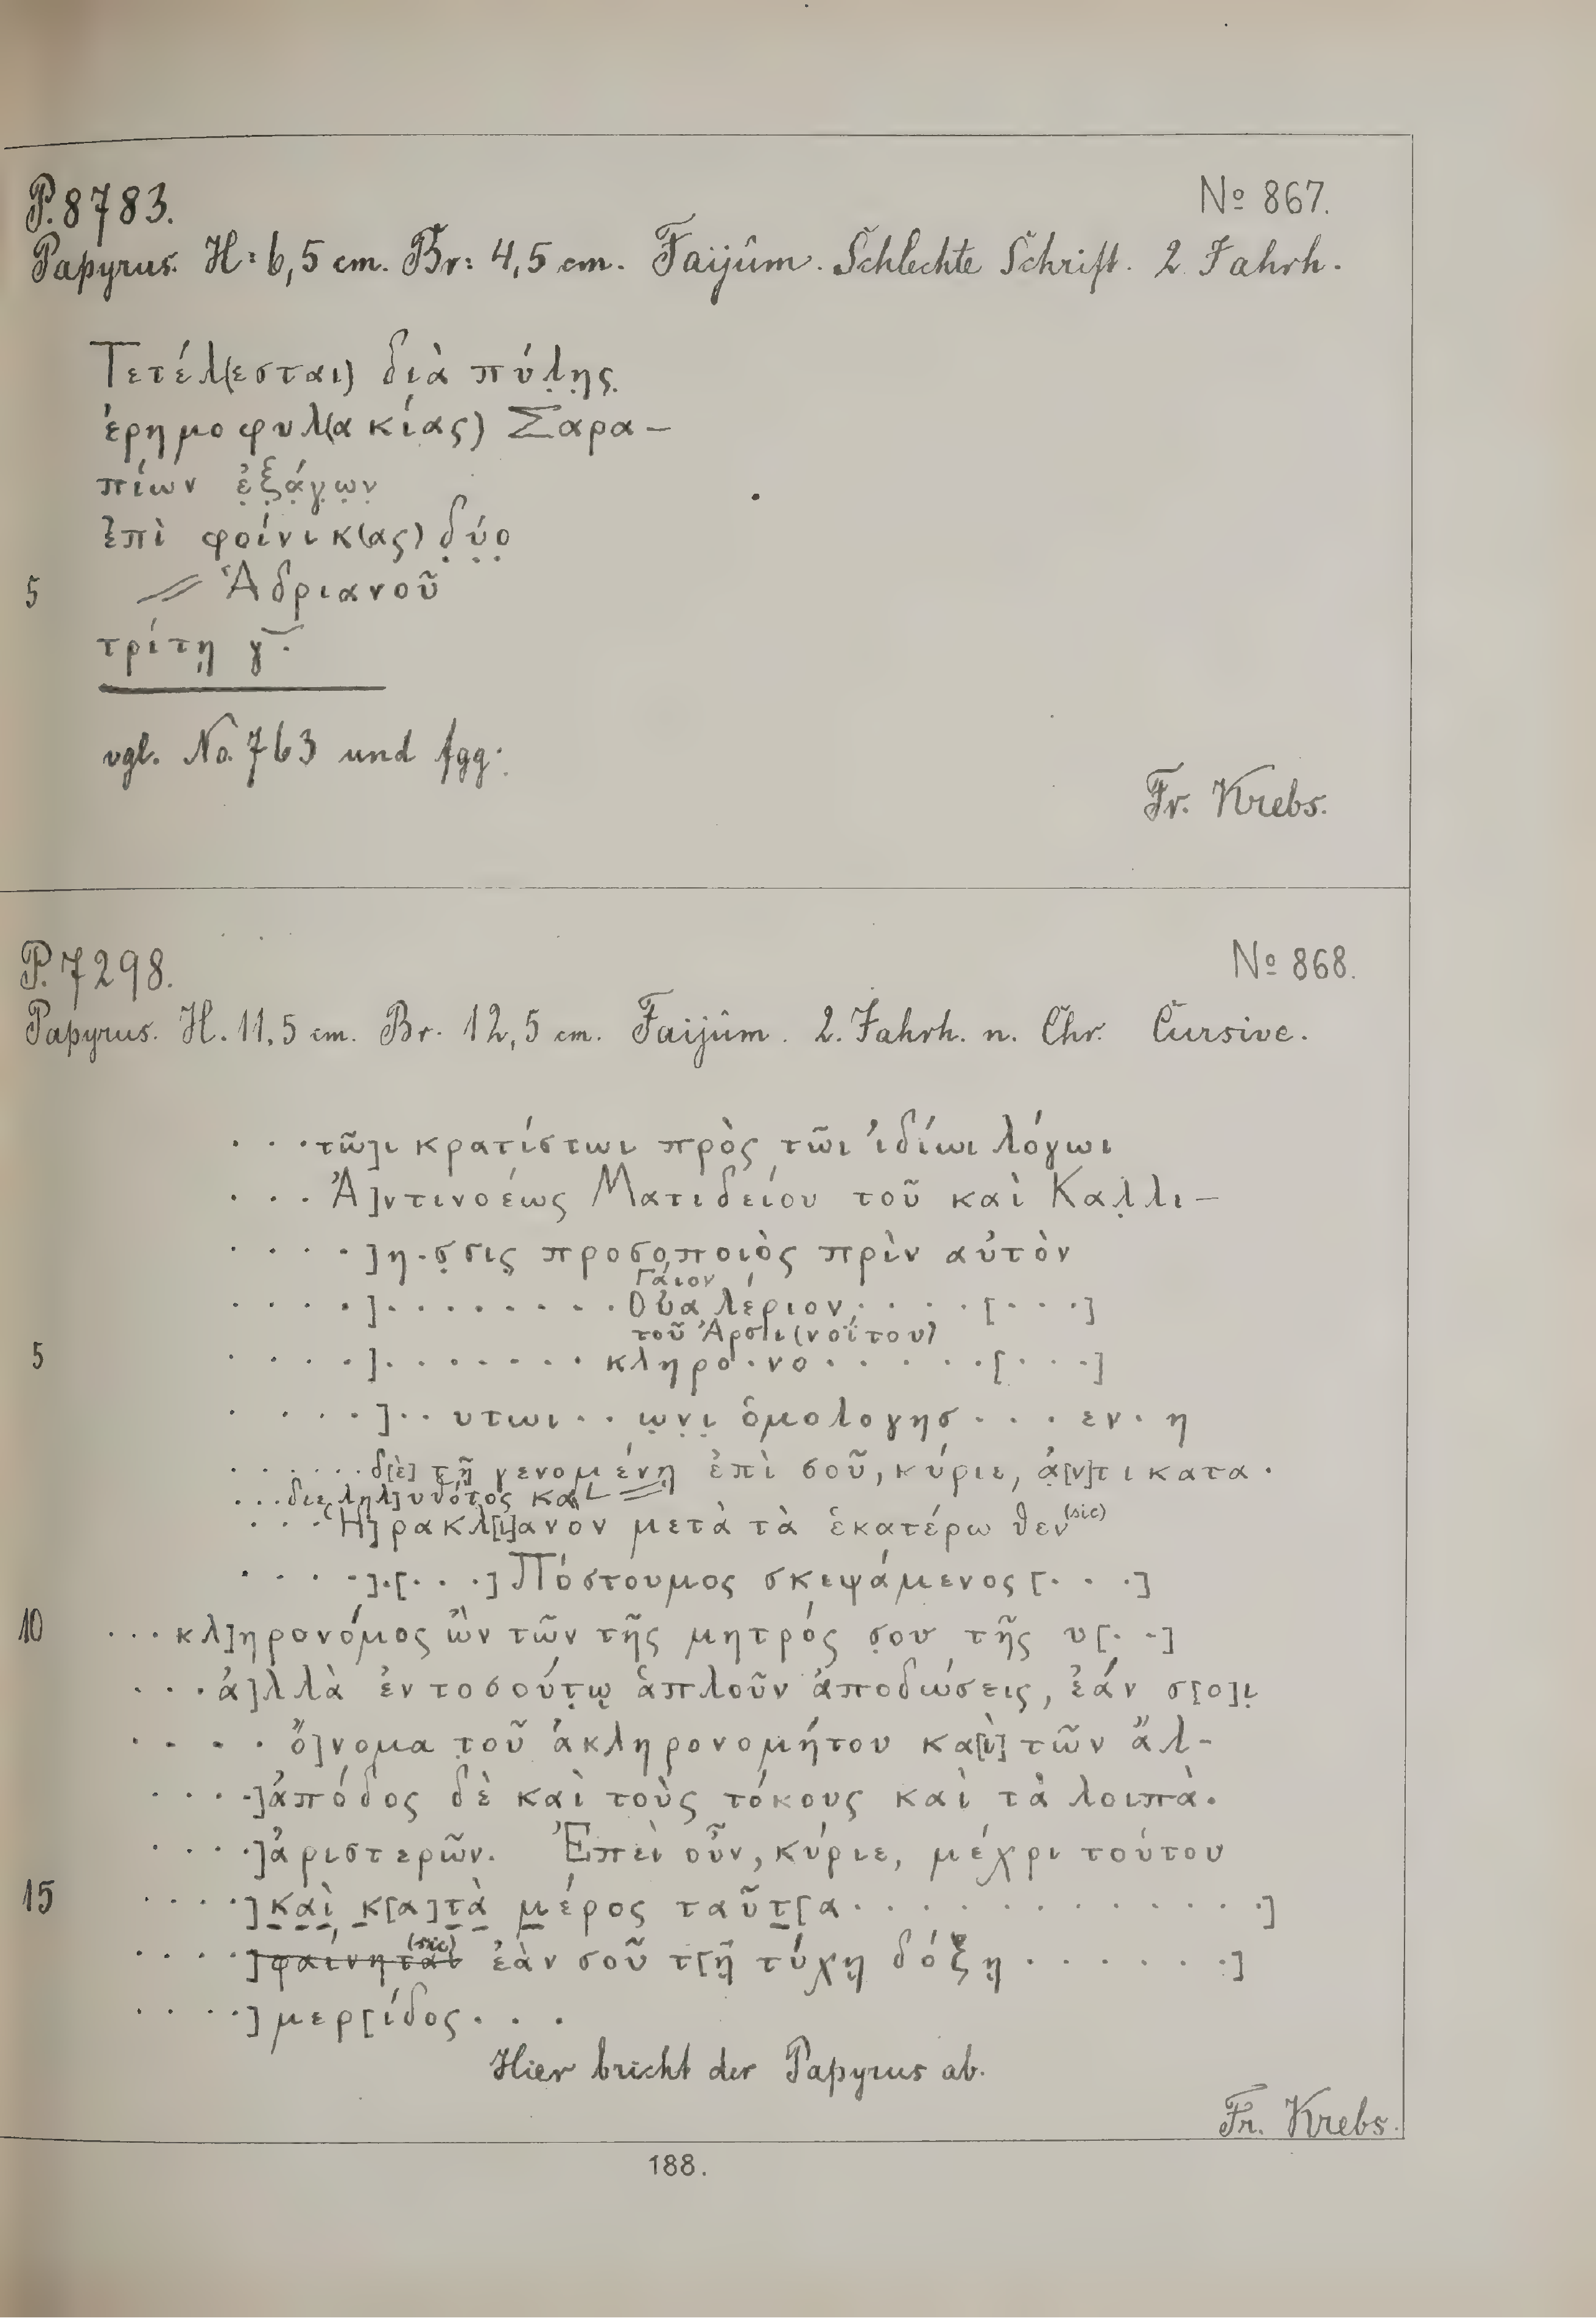 P. 8783.
No 867.
Papyrus. H: 6,5 cm. Br: 4,5 cm. Faijûm. Schlechte Schrift. 2 Jahrh.
Τετέλ(εσται) διὰ πύλης
ἐρημοφυλ(ακίας) Σαρα-
πίων ἐξάγων
ἐπὶ φοίνικ(ας) δύο
5 // Ἁδριανοῦ
τρίτῃ γ̅.
vgl. No. 763 und fgg.
Fr. Krebs.
P. 7298.
No 868.
Papyrus. H. 11,5 cm. Br. 12,5 cm. Faijûm. 2. Jahrh. n. Chr. Cursive.
. . . τῶ]ι κρατίστωι πρὸς τῶι ἰδίωι λόγωι
. . . Ἀ]ντινοέως Ματιδείου τοῦ καὶ Καλλι-
. . . . ]η . σσις προσοποιὸς πρὶν αὐτὸν
Γάιον
. . . . ] . . . . . . . . . Οὐαλέριον . . . . . [ . . . . ]
τοῦ Ἀρσι(νοΐτου)
5 . . . . ] . . . . . . . . κληρο . νο . . . . . . . [ . . . . ]
. . . . ] . . υτωι . . ωνι ὁμολογησ . . . εν . η
. . . . . . δ[ὲ] τῇ γενομένῃ ἐπὶ σοῦ, κύριε, ἀ[ν]τικατα .
. . . διεληλ]υυότος καὶ
. . . Ἡ]ρακλ[ι]ανὸν μετὰ τὰ ἑκατέρωθεν (sic)
. . . . ] . [ . . . ] Πόστουμος σκεψάμενος [ . . . ]
10 . . . κλ]ηρονόμος ὢν τῶν τῆς μητρός σου τῆς υ[ . . ]
. . . ἀ]λλὰ ἐν τοσούτῳ ἁπλοῦν ἀποδώσεις, ἐάν σ[ο]ι
. . . . ὄ]νομα τοῦ ἀκληρονομήτου κα[ὶ] τῶν ἄλ-
. . . . ]ἀπόδος δὲ καὶ τοὺς τόκους καὶ τὰ λοιπὰ .
. . . . ]ἀριστερῶν. Ἐπεὶ οὖν, κύριε, μέχρι τούτου
15 . . . . ] καὶ κ[α]τὰ μέρος ταῦτ[α . . . . . . . . . . . . ]
. . . . ] φαίνηται (sic) ἐὰν σοῦ τ[ῇ τύχῃ δόξῃ . . . . . . . ]
. . . . ] μερ[ίδος . . .
Hier bricht der Papyrus ab.
Fr. Krebs.
188.